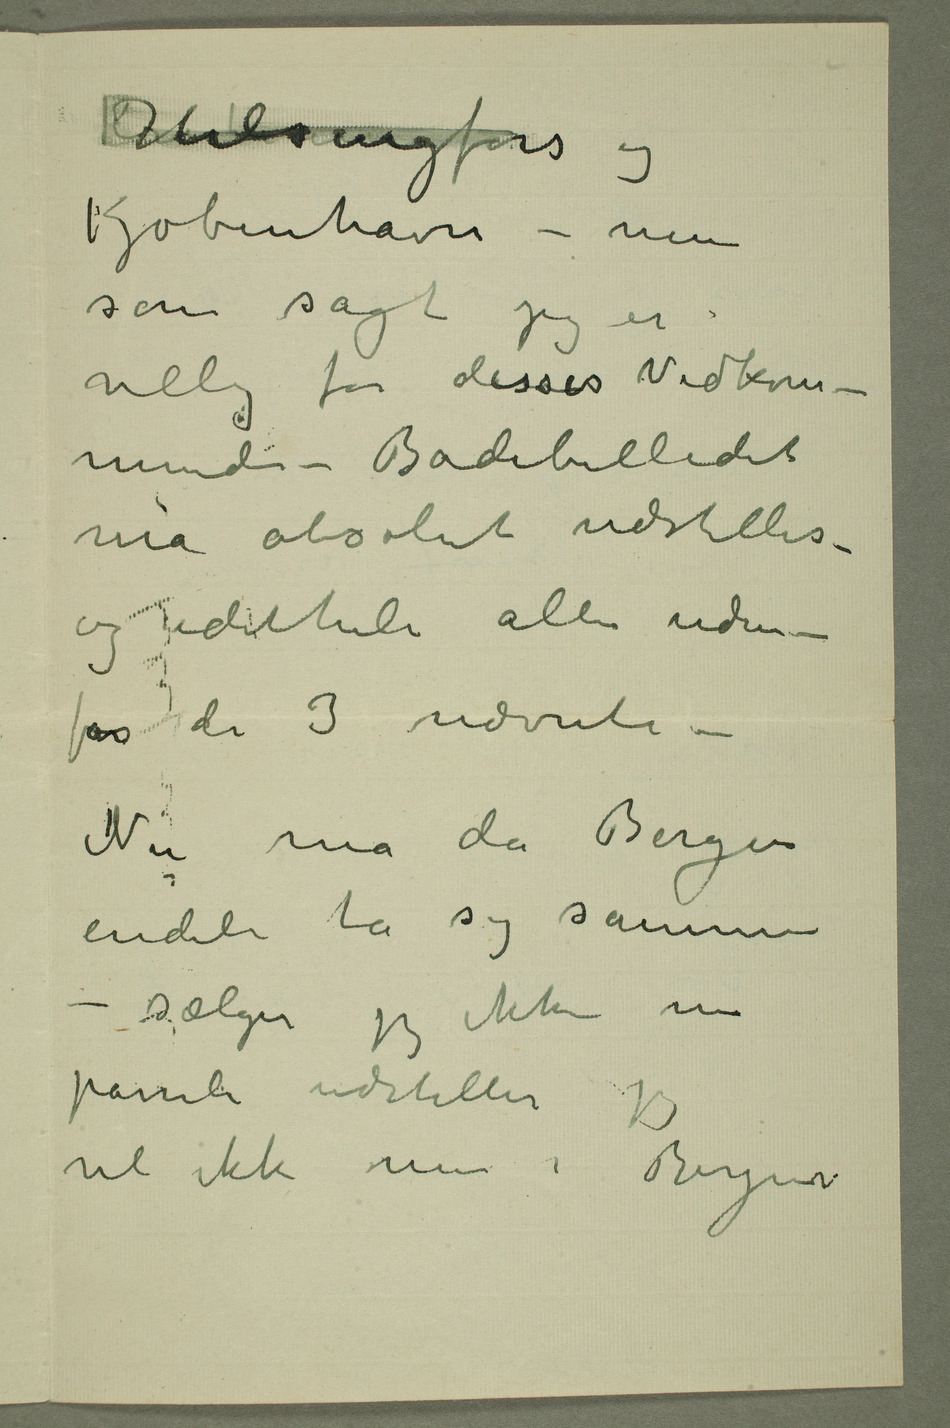 Helsingfors og
Kjøbenhavn – men
som sagt jeg er
villig for disses Vedkom–
mende – Badebilledet
må absolut udstilles –
og idethele alle uden–
for de 3 nævnte –
Nu må da Bergen
endeli ta sig sammen
– sælger jeg ikke nu
udstiller jeg
vel ikke mer i Bergen